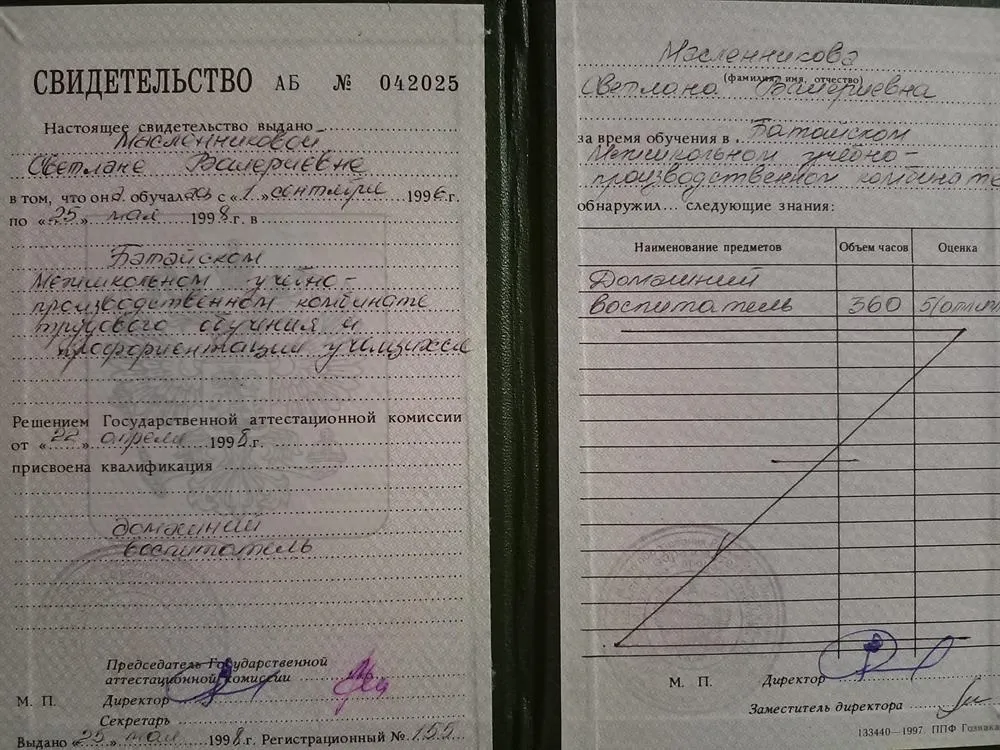 СВИДЕТЕЛЬСТВО АБ № 042025
Настоящее свидетельство выдано
Масленниковой
Светлане Валериевне
в том, что она обучалась с «1» сентября 1996 г.
по «25» мая 1998 г. в
Батайском
Межшкольном учебно-
производственном комбинате
трудового обучения и
профориентации учащихся
Решением Государственной аттестационной комиссии
от «22» апреля 1998 г.
присвоена квалификация
домашний
воспитатель
Председатель Государственной
аттестационной комиссии
М. П. Директор
Секретарь
Выдано «25» мая 1998 г. Регистрационный № 155
Масленникова
(фамилия, имя, отчество)
Светлана Валериевна
за время обучения в Батайском
Межшкольном учебно-
производственном комбинате
обнаружил... следующие знания:
Наименование предметов Объем часов Оценка
Домашний
воспитатель 360 5(отлич
М. П. Директор
Заместитель директора
133440—1997. ППФ Гознака